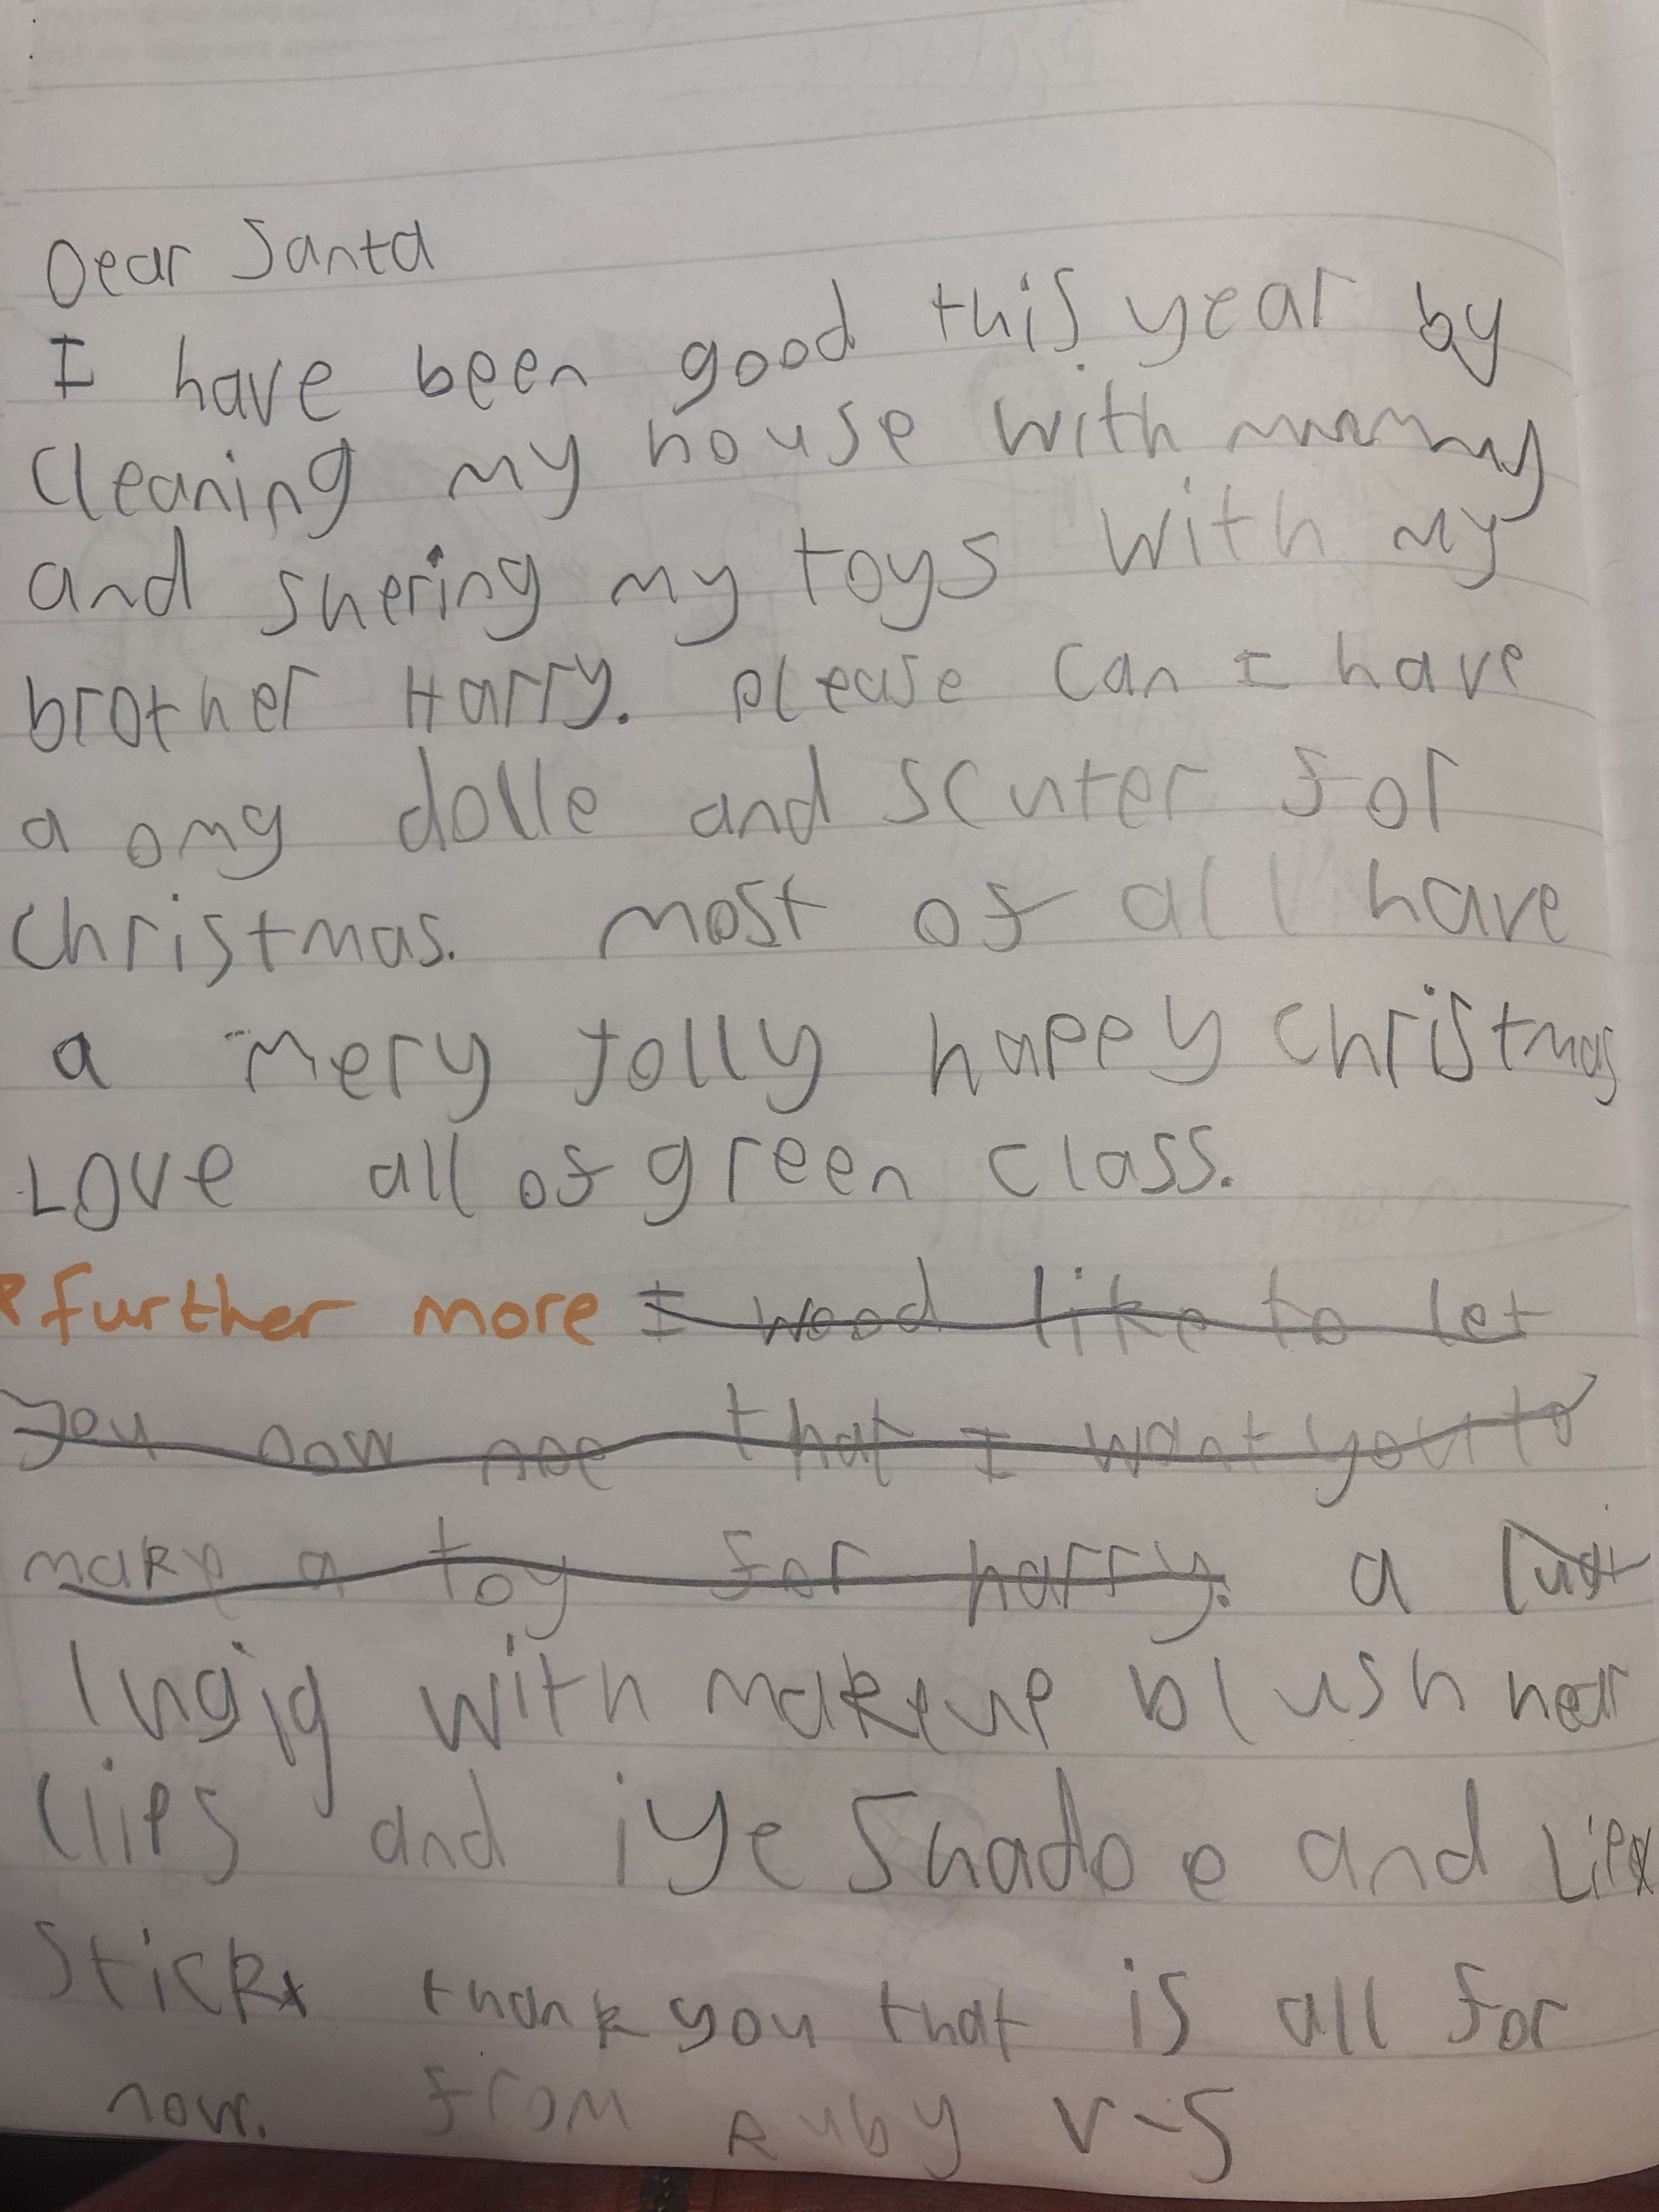 Dear Santa
I have been good this year by
cleaning my house with mummy
and shering my toys with my
brother Harry. please can I have
a omg dolle and scuter for
christmas. most of all have
a mery jolly happy christmas
Love all of green class.
further more I wood like to let
you now noe that I want you to
make a toy for harry. a
lugig with makeup blush hear
clips and iye shadoe and Lip
stick thank you that is all for
now. from Ruby V-S